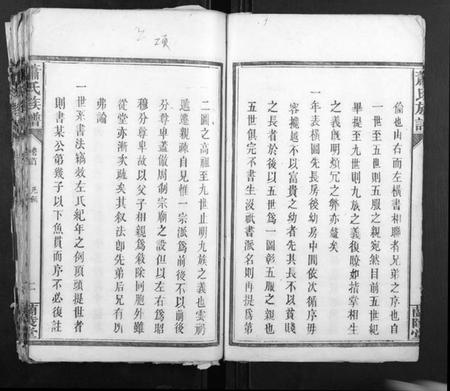 倫也由右而左橫書相聯者兄弟之序也自
一世至五世則五服之親宛然目前五世紀
畢提至九世則九族之義復瞭如指掌相生
之義旣明煩冗之弊亦蠲矣
一年表橫圖先長房後幼房中間依次循序毋
容攙越不以富貴之幼者先其長不以貧賤
之長者於後以五世爲一圖彰五服之親也
五世俱完不書生沒祇書派名則再提爲第
二圖之高祖至九世止明九族之義也雲礽
遞遷親疎自見惟一宗派爲前後不以前後
分尊卑蓋倣周制宗廟之設但以左右爲昭
穆分尊卑故以父子相親爲殺除同胞外雖
從堂亦漸次疏矣其叙法卽先弟后兄有所
弗論
一世系書法縞效左氏紀年之例頂頭提世者
則書某公第幾子以下魚貫而序不必復註
蕭氏族譜
卷首
凡例
蕭氏族譜
蘭陵堂